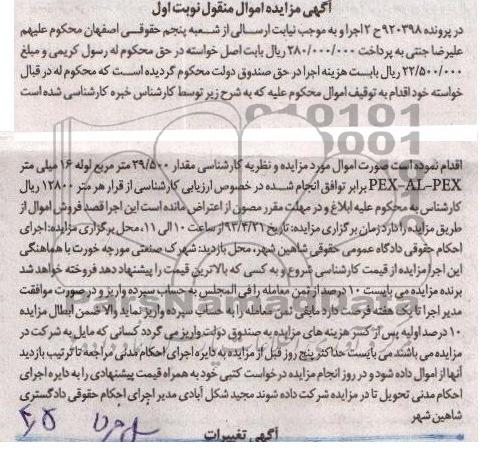 آگهی مزایده اموال منقول نوبت اول
در پرونده ۹۲۰۳۹۸ ح ۲ اجرا و به موجب نیابت ارسالی از شعبه پنجم حقوقی اصفهان محکوم علیهم
علیرضا جنتی به پرداخت ۲۸۰/۰۰۰/۰۰۰ ریال بابت اصل خواسته در حق محکوم له رسول کریمی و مبلغ
۲۲/۵۰۰/۰۰۰ ریال بابت هزینه اجرا در حق صندوق دولت محکوم گردیده است که محکوم له در قبال
خواسته خود اقدام به توقیف اموال محکوم علیه که به شرح زیر توسط کارشناس خبره کارشناسی شده است
اقدام نموده است صورت اموال مورد مزایده و نظریه کارشناسی مقدار ۳۹/۵۰۰ متر مربع لوله ۱۶ میلی متر
PEX-AL-PEX برابر توافق انجام شده در خصوص ارزیابی کارشناسی از قرار هر متر ۱۲۸۰۰ ریال
کارشناسی به محکوم علیه ابلاغ و در مهلت مقرر مصون از اعتراض مانده است این اجرا قصد فروش اموال از
طریق مزایده را دارد زمان برگزاری مزایده: تاریخ ۹۳/۴/۲۱ از ساعت ۱۰ الی ۱۱، محل برگزاری مزایده: اجرای
احکام حقوقی دادگاه عمومی حقوقی شاهین شهر، محل بازدید: شهرک صنعتی مورچه خورت با هماهنگی
این اجرا مزایده از قیمت کارشناسی شروع و به کسی که بالاترین قیمت را پیشنهاد دهد فروخته خواهد شد
برنده مزایده می بایست ۱۰ درصد از ثمن معامله را فی المجلس به حساب سپرده واریز و در صورت موافقت
مدیر اجرا تا یک هفته فرصت دارد مابقی ثمن معامله را به حساب سپرده واریز نماید والا ضمن ابطال مزایده
۱۰ درصد اولیه پس از کسر هزینه های مزایده به صندوق دولت واریز می گردد کسانی که مایل به شرکت در
مزایده می باشند می بایست حداکثر پنج روز قبل از مزایده به دایره اجرای احکام مدنی مراجعه تا ترتیب بازدید
آنها از اموال داده شود و در روز انجام مزایده درخواست کتبی خود به همراه قیمت پیشنهادی را به دایره اجرای
احکام مدنی تحویل تا در مزایده شرکت داده شوند مجید شکل آبادی مدیر اجرای احکام حقوقی دادگستری
شاهین شهر
آگهی تغییرات
ParsNamadData